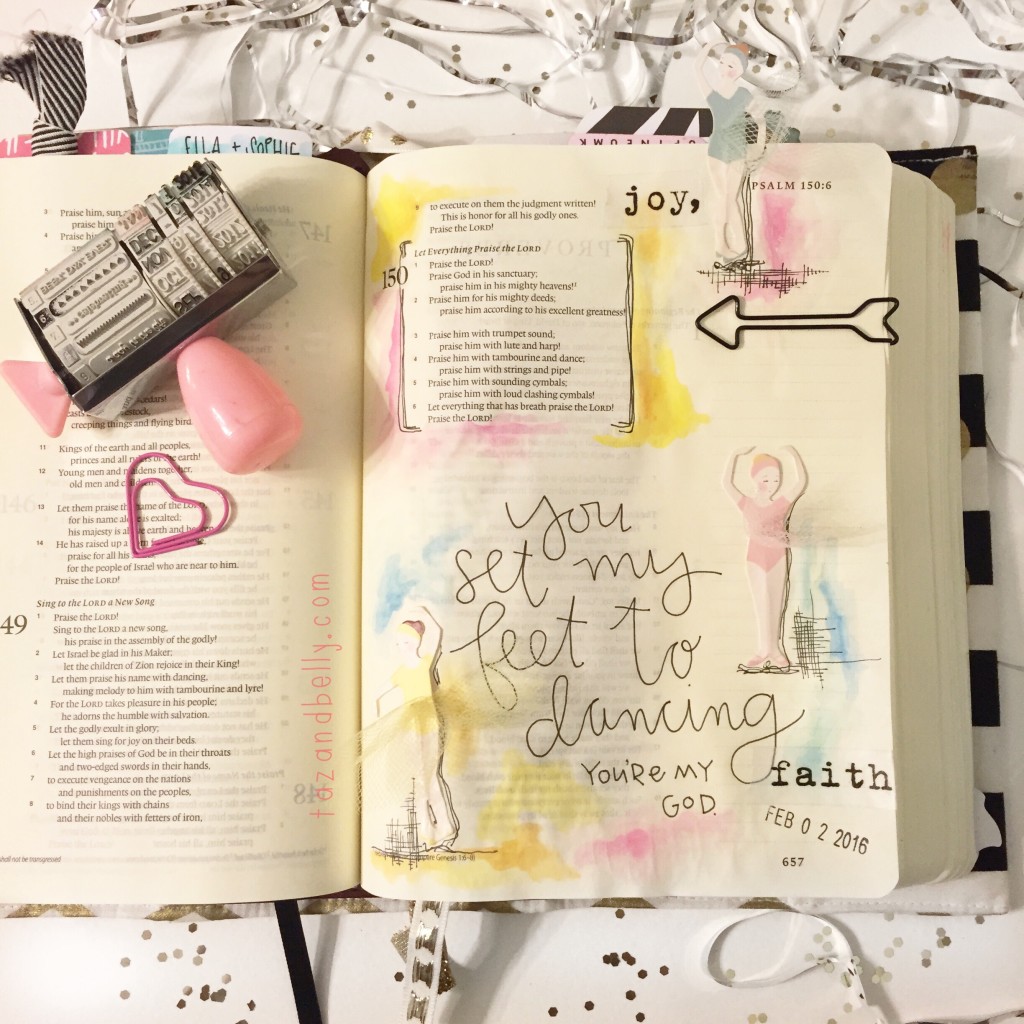 ELLA + SOPHIE
3 Praise him, sun
praise him
4 Praise hi
creeping things and flying bird
11 Kings of the earth and all peoples,
princes and all of the earth!
12 Young men and maidens together,
old men and
13 Let them praise the name of the
for his name is exalted;
his majesty is earth and
14 He has raised up a
praise for all his
for the people of Israel who are near to him.
Praise the LORD!
Sing to the LORD a New Song
49 1 Praise the LORD!
Sing to the LORD a new song,
his praise in the assembly of the godly!
2 Let Israel be glad in his Maker;
let the children of Zion rejoice in their King!
3 Let them praise his name with dancing,
making melody to him with tambourine and lyre!
4 For the LORD takes pleasure in his people;
he adorns the humble with salvation.
5 Let the godly exult in glory;
let them sing for joy on their beds.
6 Let the high praises of God be in their throats
and two-edged swords in their hands,
7 to execute vengeance on the nations
and punishments on the peoples,
8 to bind their kings with chains
and their nobles with fetters of iron,
shall not be transgressed
tozandbelly.com
9 to execute on them the judgment written!
This is honor for all his godly ones.
Praise the LORD!
joy,
PSALM 150:6
Let Everything Praise the LORD
150 1 Praise the LORD!
Praise God in his sanctuary;
praise him in his mighty heavens!
2 Praise him for his mighty deeds;
praise him according to his excellent greatness!
3 Praise him with trumpet sound;
praise him with lute and harp!
4 Praise him with tambourine and dance;
praise him with strings and pipe!
5 Praise him with sounding cymbals;
praise him with loud clashing cymbals!
6 Let everything that has breath praise the LORD!
Praise the LORD!
you
set my
feet to
dancing
YOU'RE MY
GOD.
faith
FEB 02 2016
657